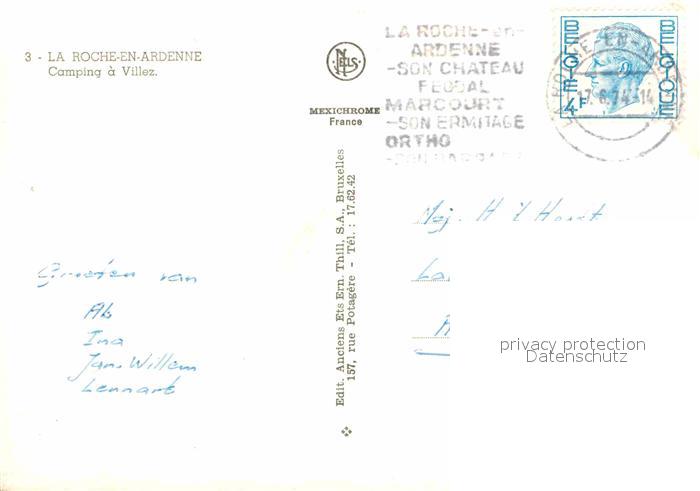 3 - LA ROCHE-EN-ARDENNE
Camping à Villez.
NELS
MEXICHROME
France
LA ROCHE-en-
ARDENNE
-SON CHATEAU
FEODAL
MARCOURT
-SON ERMITAGE
ORTHO
BELGIE
4F
BELGIQUE
17.6.74-14
Edit. Anciens Ets Ern. Thill, S.A., Bruxelles
157, rue Potagère - Tél. : 17.62.42
Groeten van
Ab
Ina
Jan-Willem
Lennart
privacy protection
Datenschutz